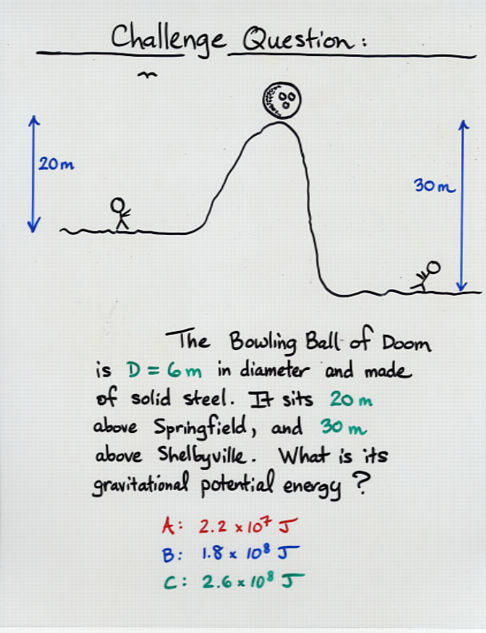 Challenge Question:
20m
30m
The Bowling Ball of Doom
is D = 6m in diameter and made
of solid steel. It sits 20 m
above Springfield, and 30 m
above Shelbyville. What is its
gravitational potential energy?
A: 2.2 x 10⁷ J
B: 1.8 x 10⁸ J
C: 2.6 x 10⁸ J